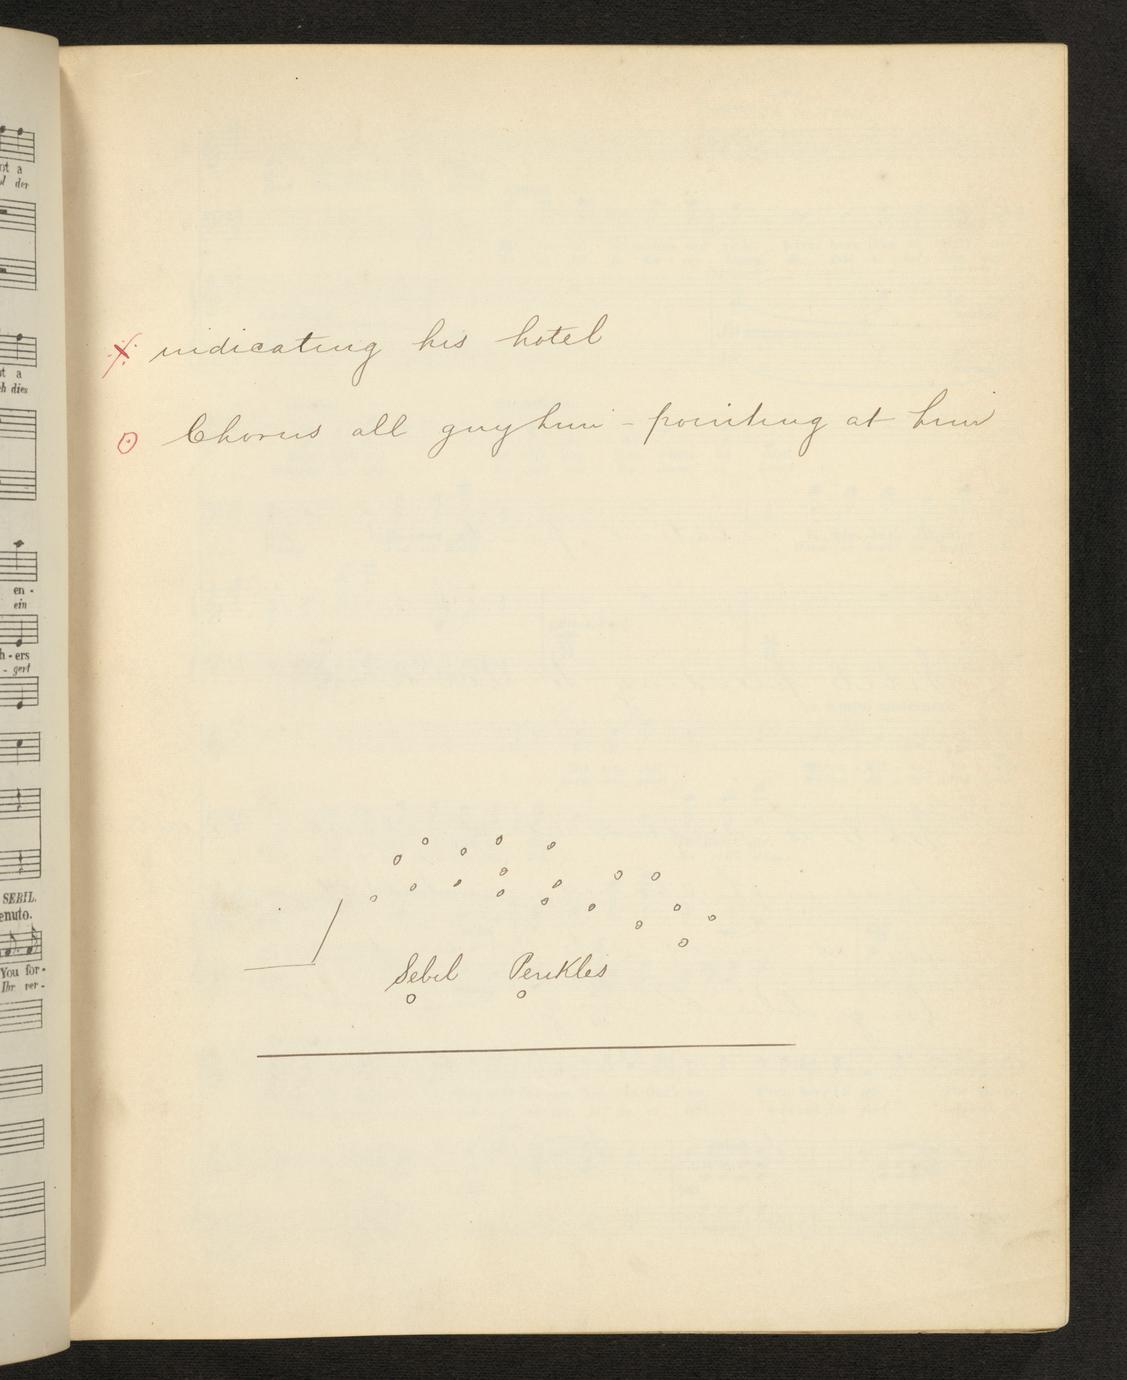 ot a
der
ot a
ch dies
en -
ein
h - ers
- gert
SEBIL.
enuto.
You for-
Ihr ver-
indicating his hotel
Chorus all guy him - pointing at him
Sebil Perikles